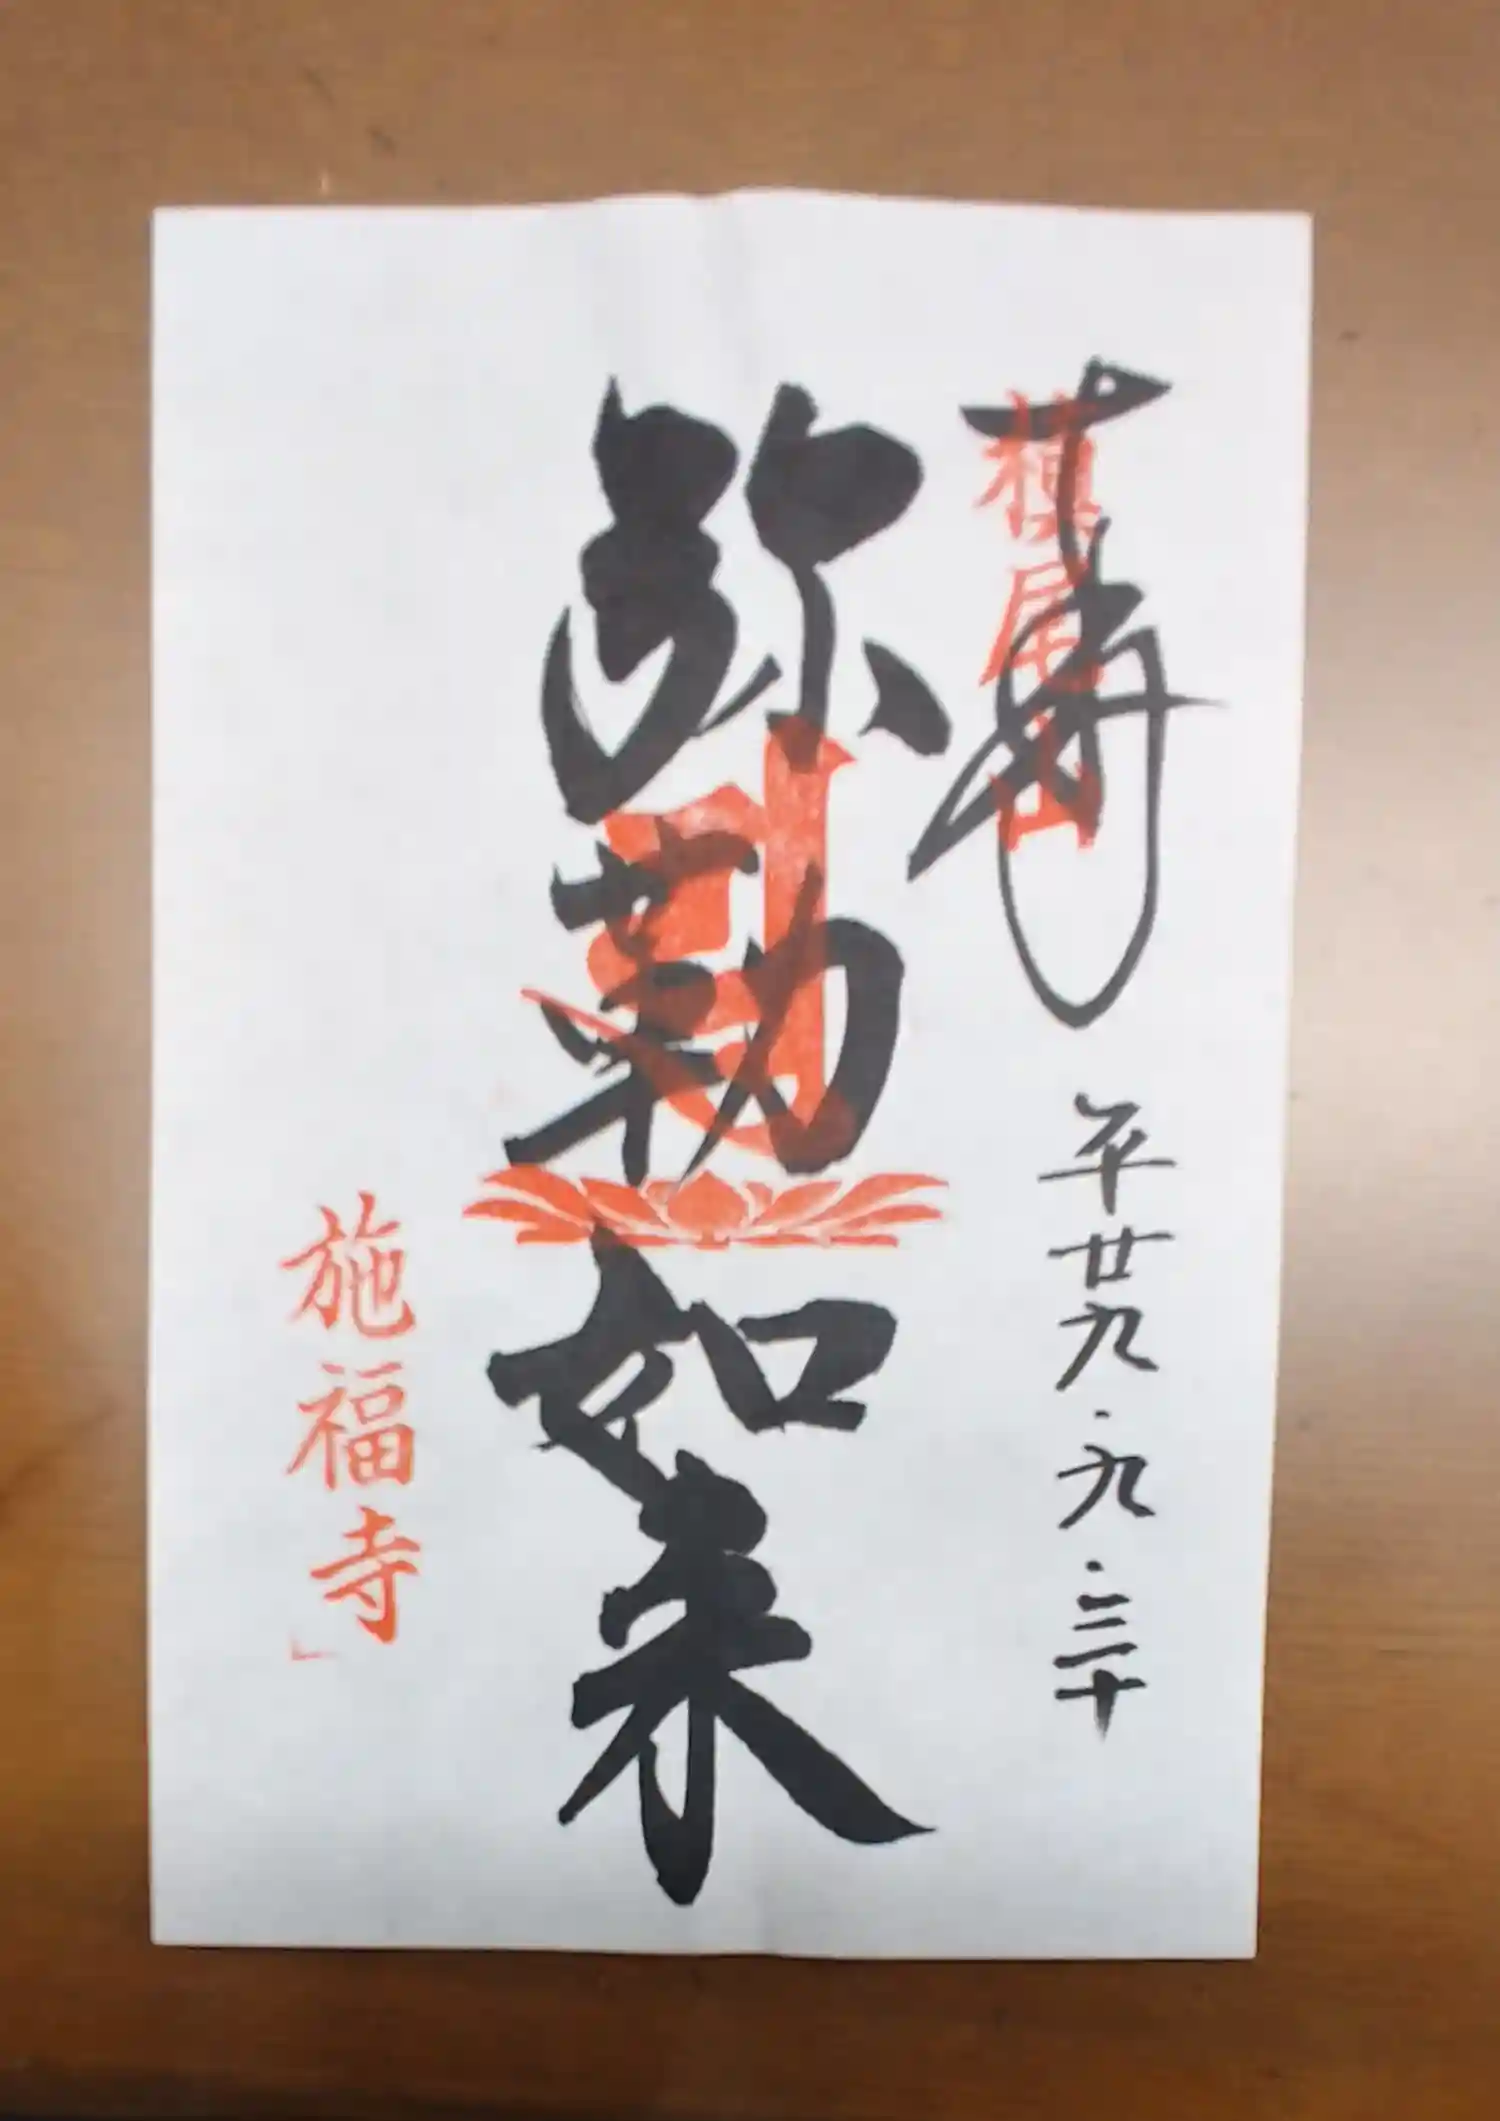 奉拝
槇尾山
平廿九.九.三十
弥勒如来
施福寺」